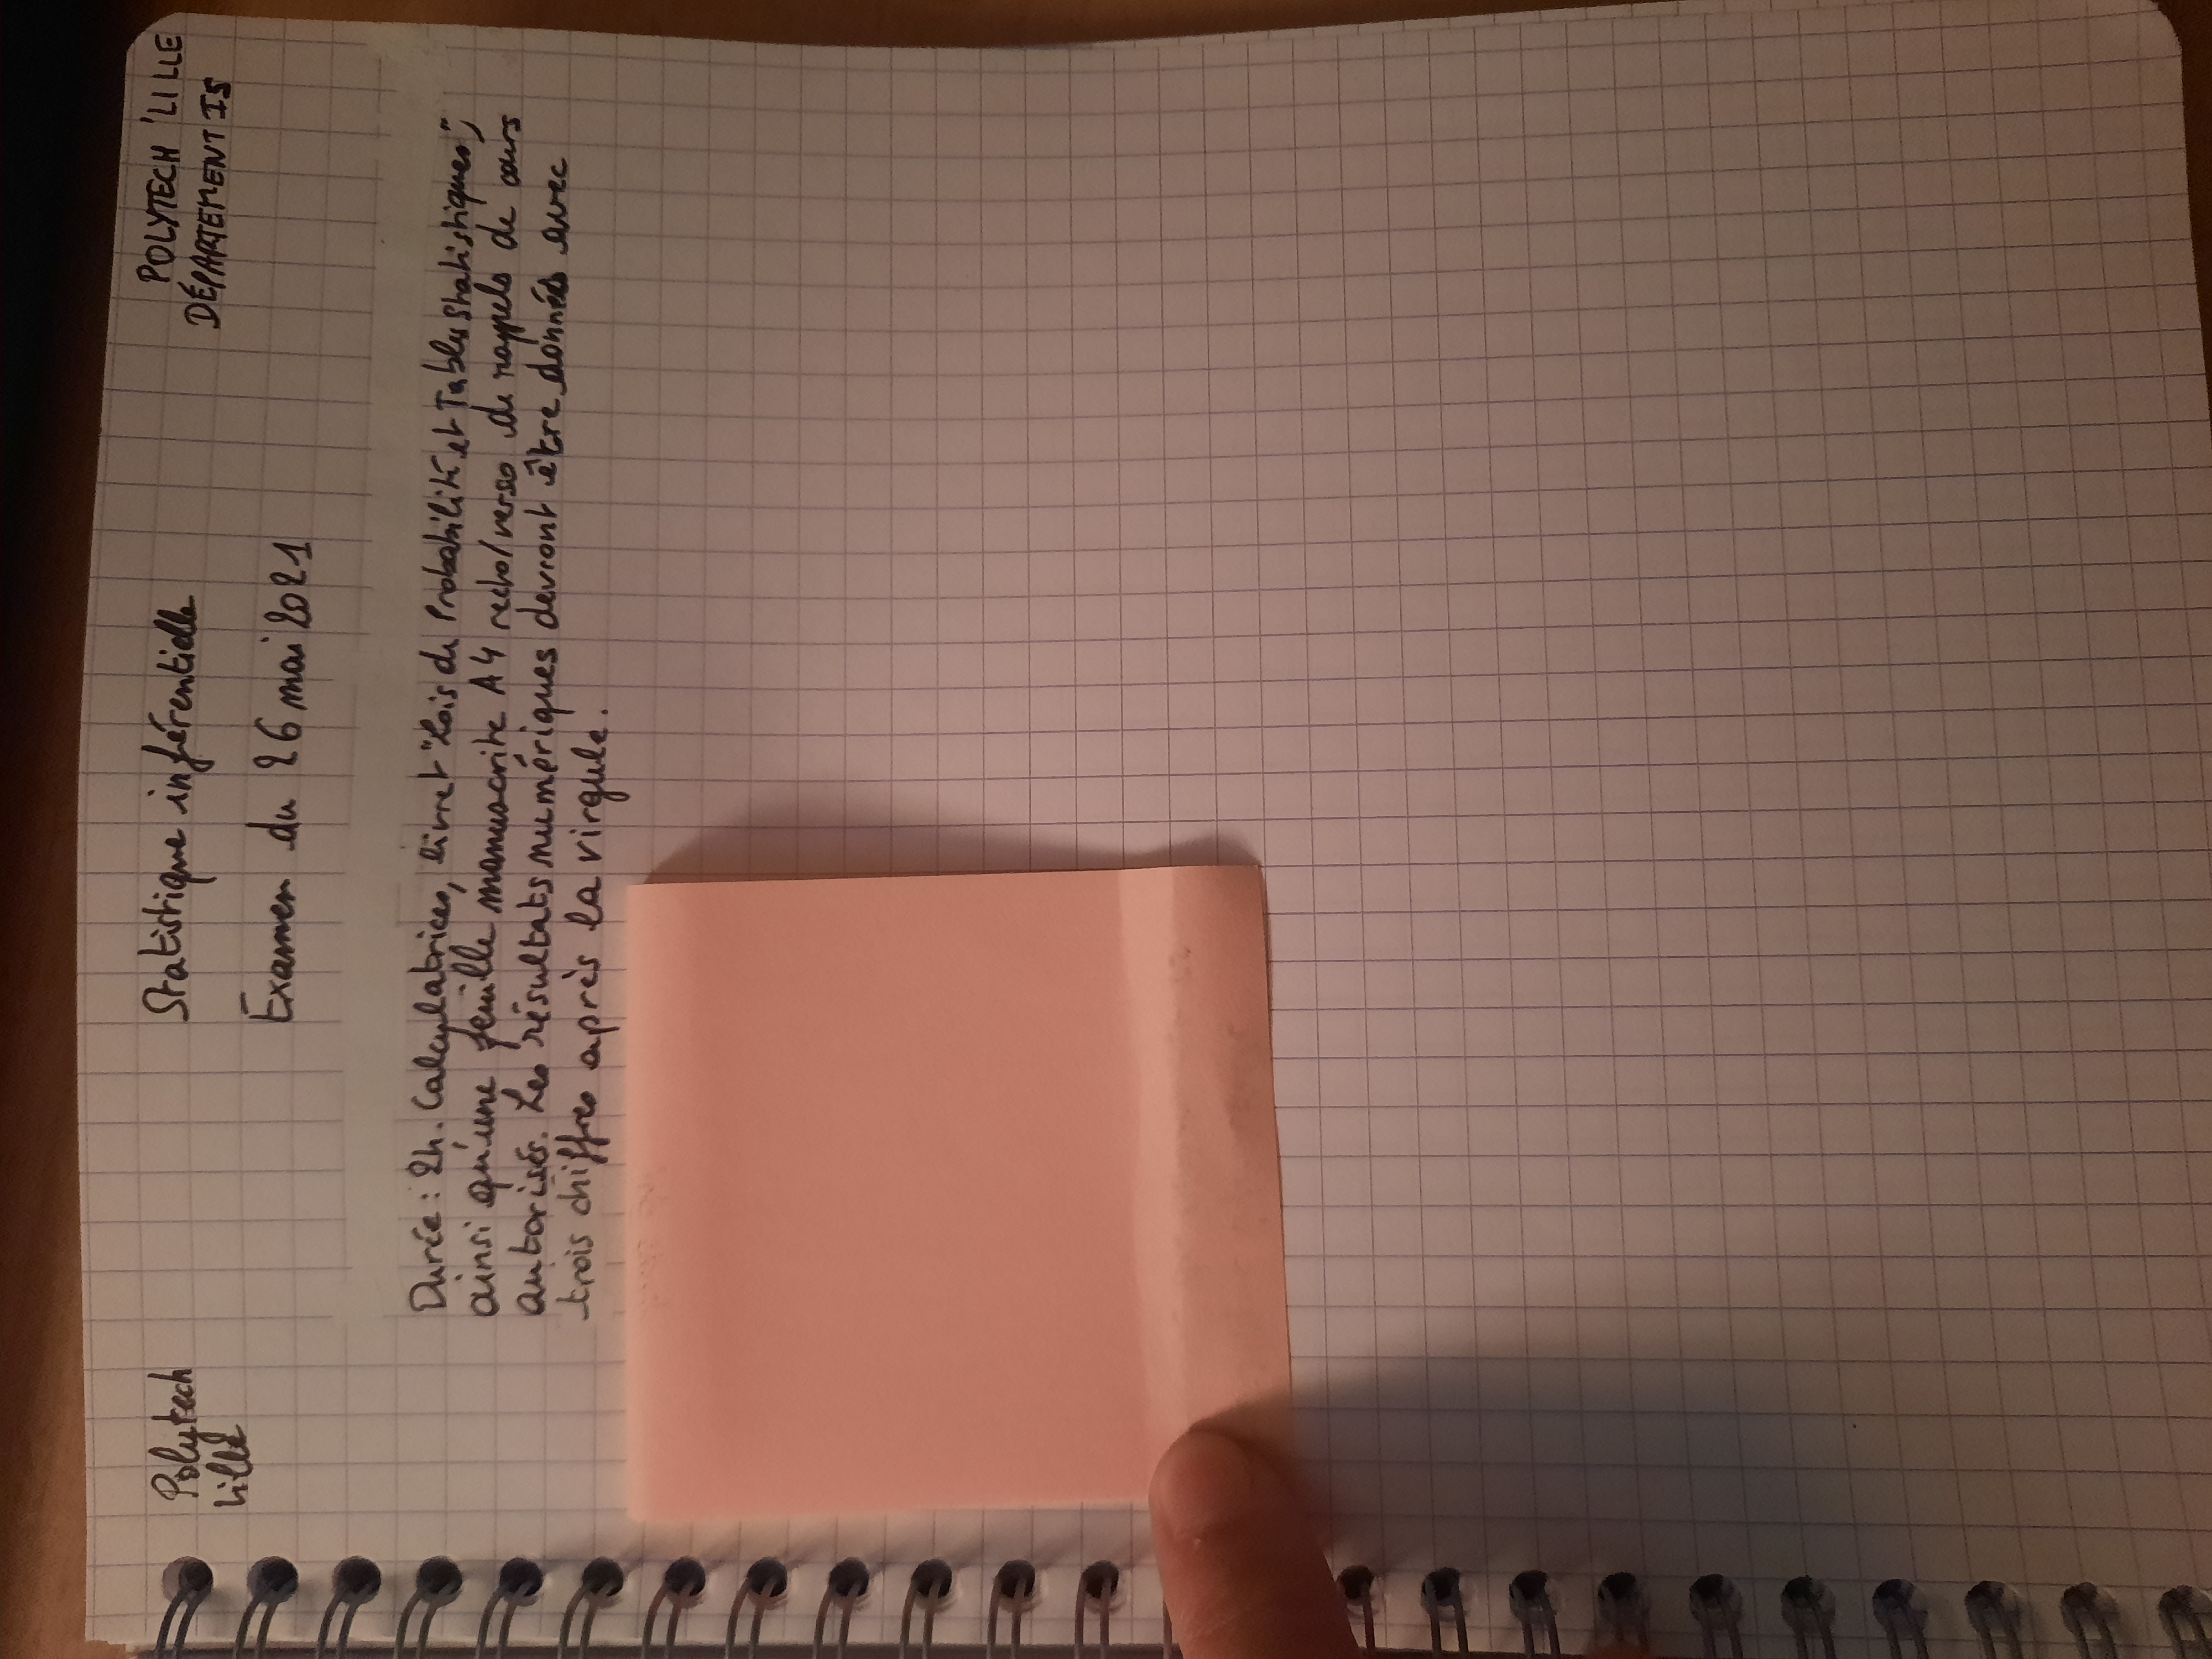 Polytech
Lille
Statistique inférentielle
POLYTECH 'LILLE
DÉPARTEMENT IS
Examen du 26 mai 2021
Durée : 2h. Calculatrices, livret "Lois de Probabilité et Tables Statistiques",
ainsi qu'une feuille manuscrite A4 recto/verso de rappels de cours
autorisés. Les résultats numériques devront être donnés avec
trois chiffres après la virgule.